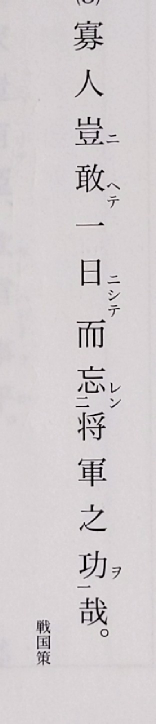 寡人豈ニ敢ヘテ一日ニシテ而忘レン二将軍之功ヲ一哉。
戦国策